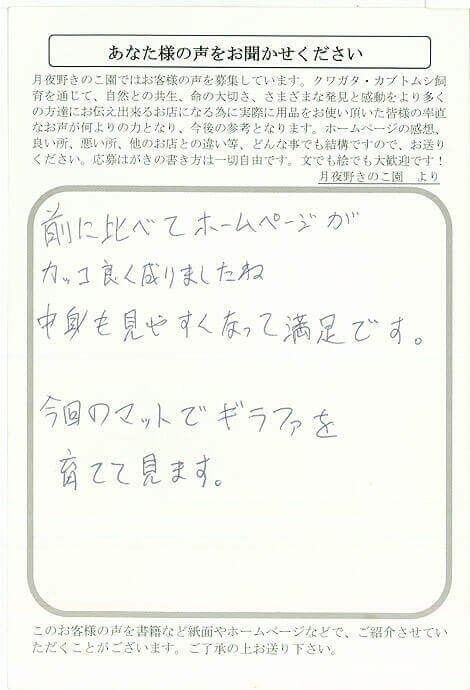 あなた様の声をお聞かせください
月夜野きのこ園ではお客様の声を募集しています。クワガタ・カブトムシ飼
育を通じて、自然との共生、命の大切さ、さまざまな発見と感動をより多く
の方達にお伝え出来るお店になる為に実際に用品をお使い頂いた皆様の率直
なお声が何よりの力となり、今後の参考となります。ホームページの感想、
良い所、悪い所、他のお店との違い等、どんな事でも結構ですので、お送り
ください。応募はがきの書き方は一切自由です。文でも絵でも大歓迎です！
月夜野きのこ園 より
前に比べてホームページが
カッコ良く成りましたね
中身も見やすくなって満足です。
今回のマットでギラファを
育てて見ます。
このお客様の声を書籍など紙面やホームページなどで、ご紹介させてい
ただくことがございます。ご了承の上お送り下さい。